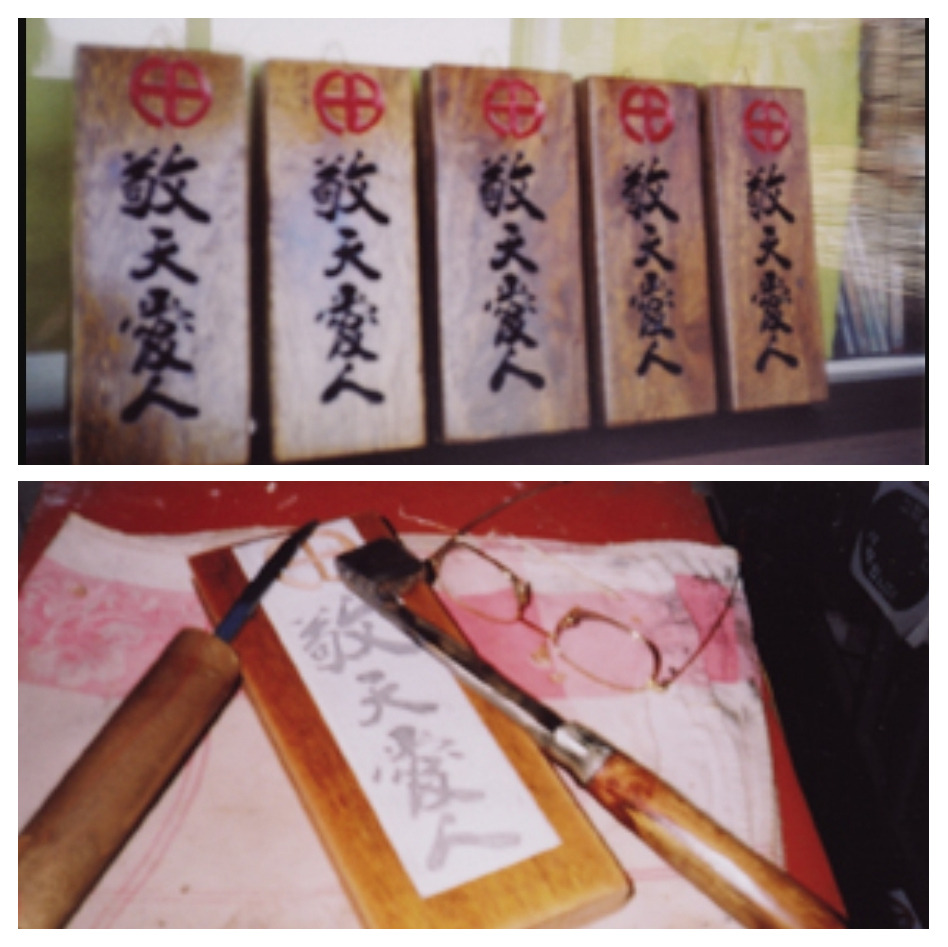 敬天愛人
敬天愛人
敬天愛人
敬天愛人
敬天愛人
敬天愛人